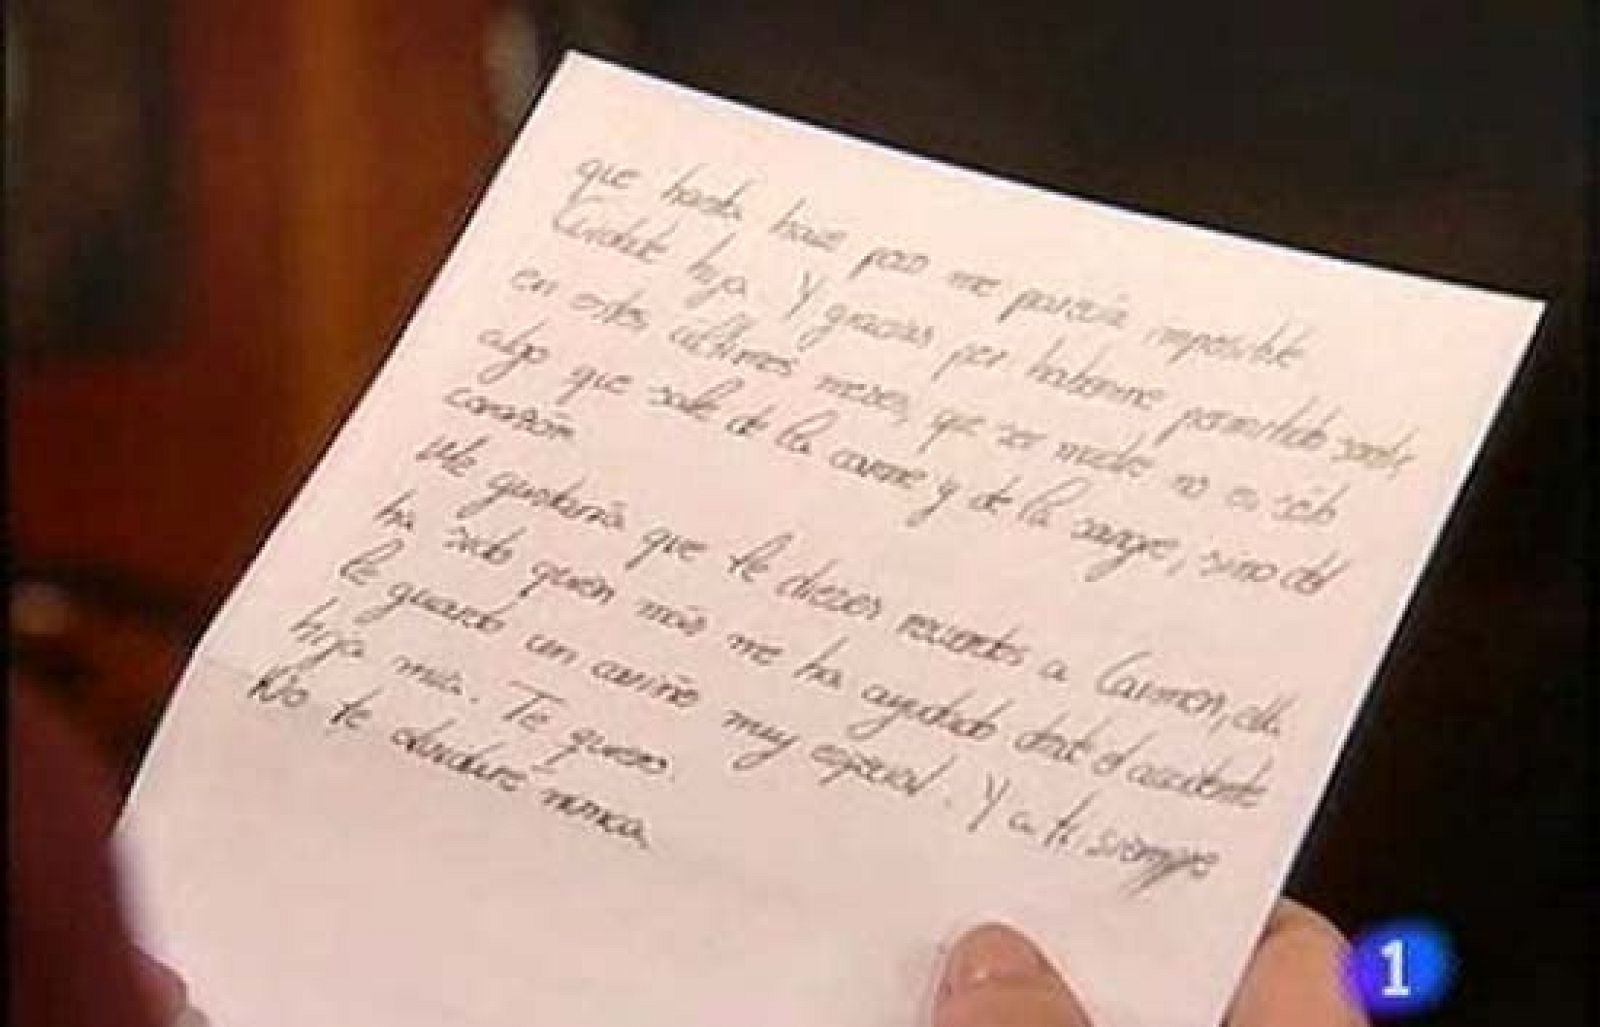 que hasta hace poco me parecía imposible
Cuídate hija. Y gracias por haberme permitido sentir,
en estos últimos meses, que ser madre no es sólo
algo que sale de la carne y de la sangre, sino del
corazón.
Me gustaría que le dieses recuerdos a Carmen, ella
ha sido quien más me ha ayudado desde el accidente
le guardo un cariño muy especial. Y a ti siempre
hija mía. Te quiero.
No te olvidaré nunca.
1